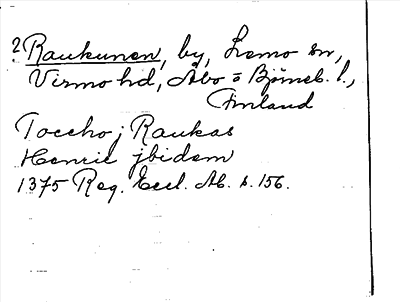 ? Raukunen, by, Lemo sn,
Virmo hd, Åbo o Björneb. l.,
Finland
Toccho j Raukas
Henric jbidem
1375 Reg. Eccl. Ab. s. 156.